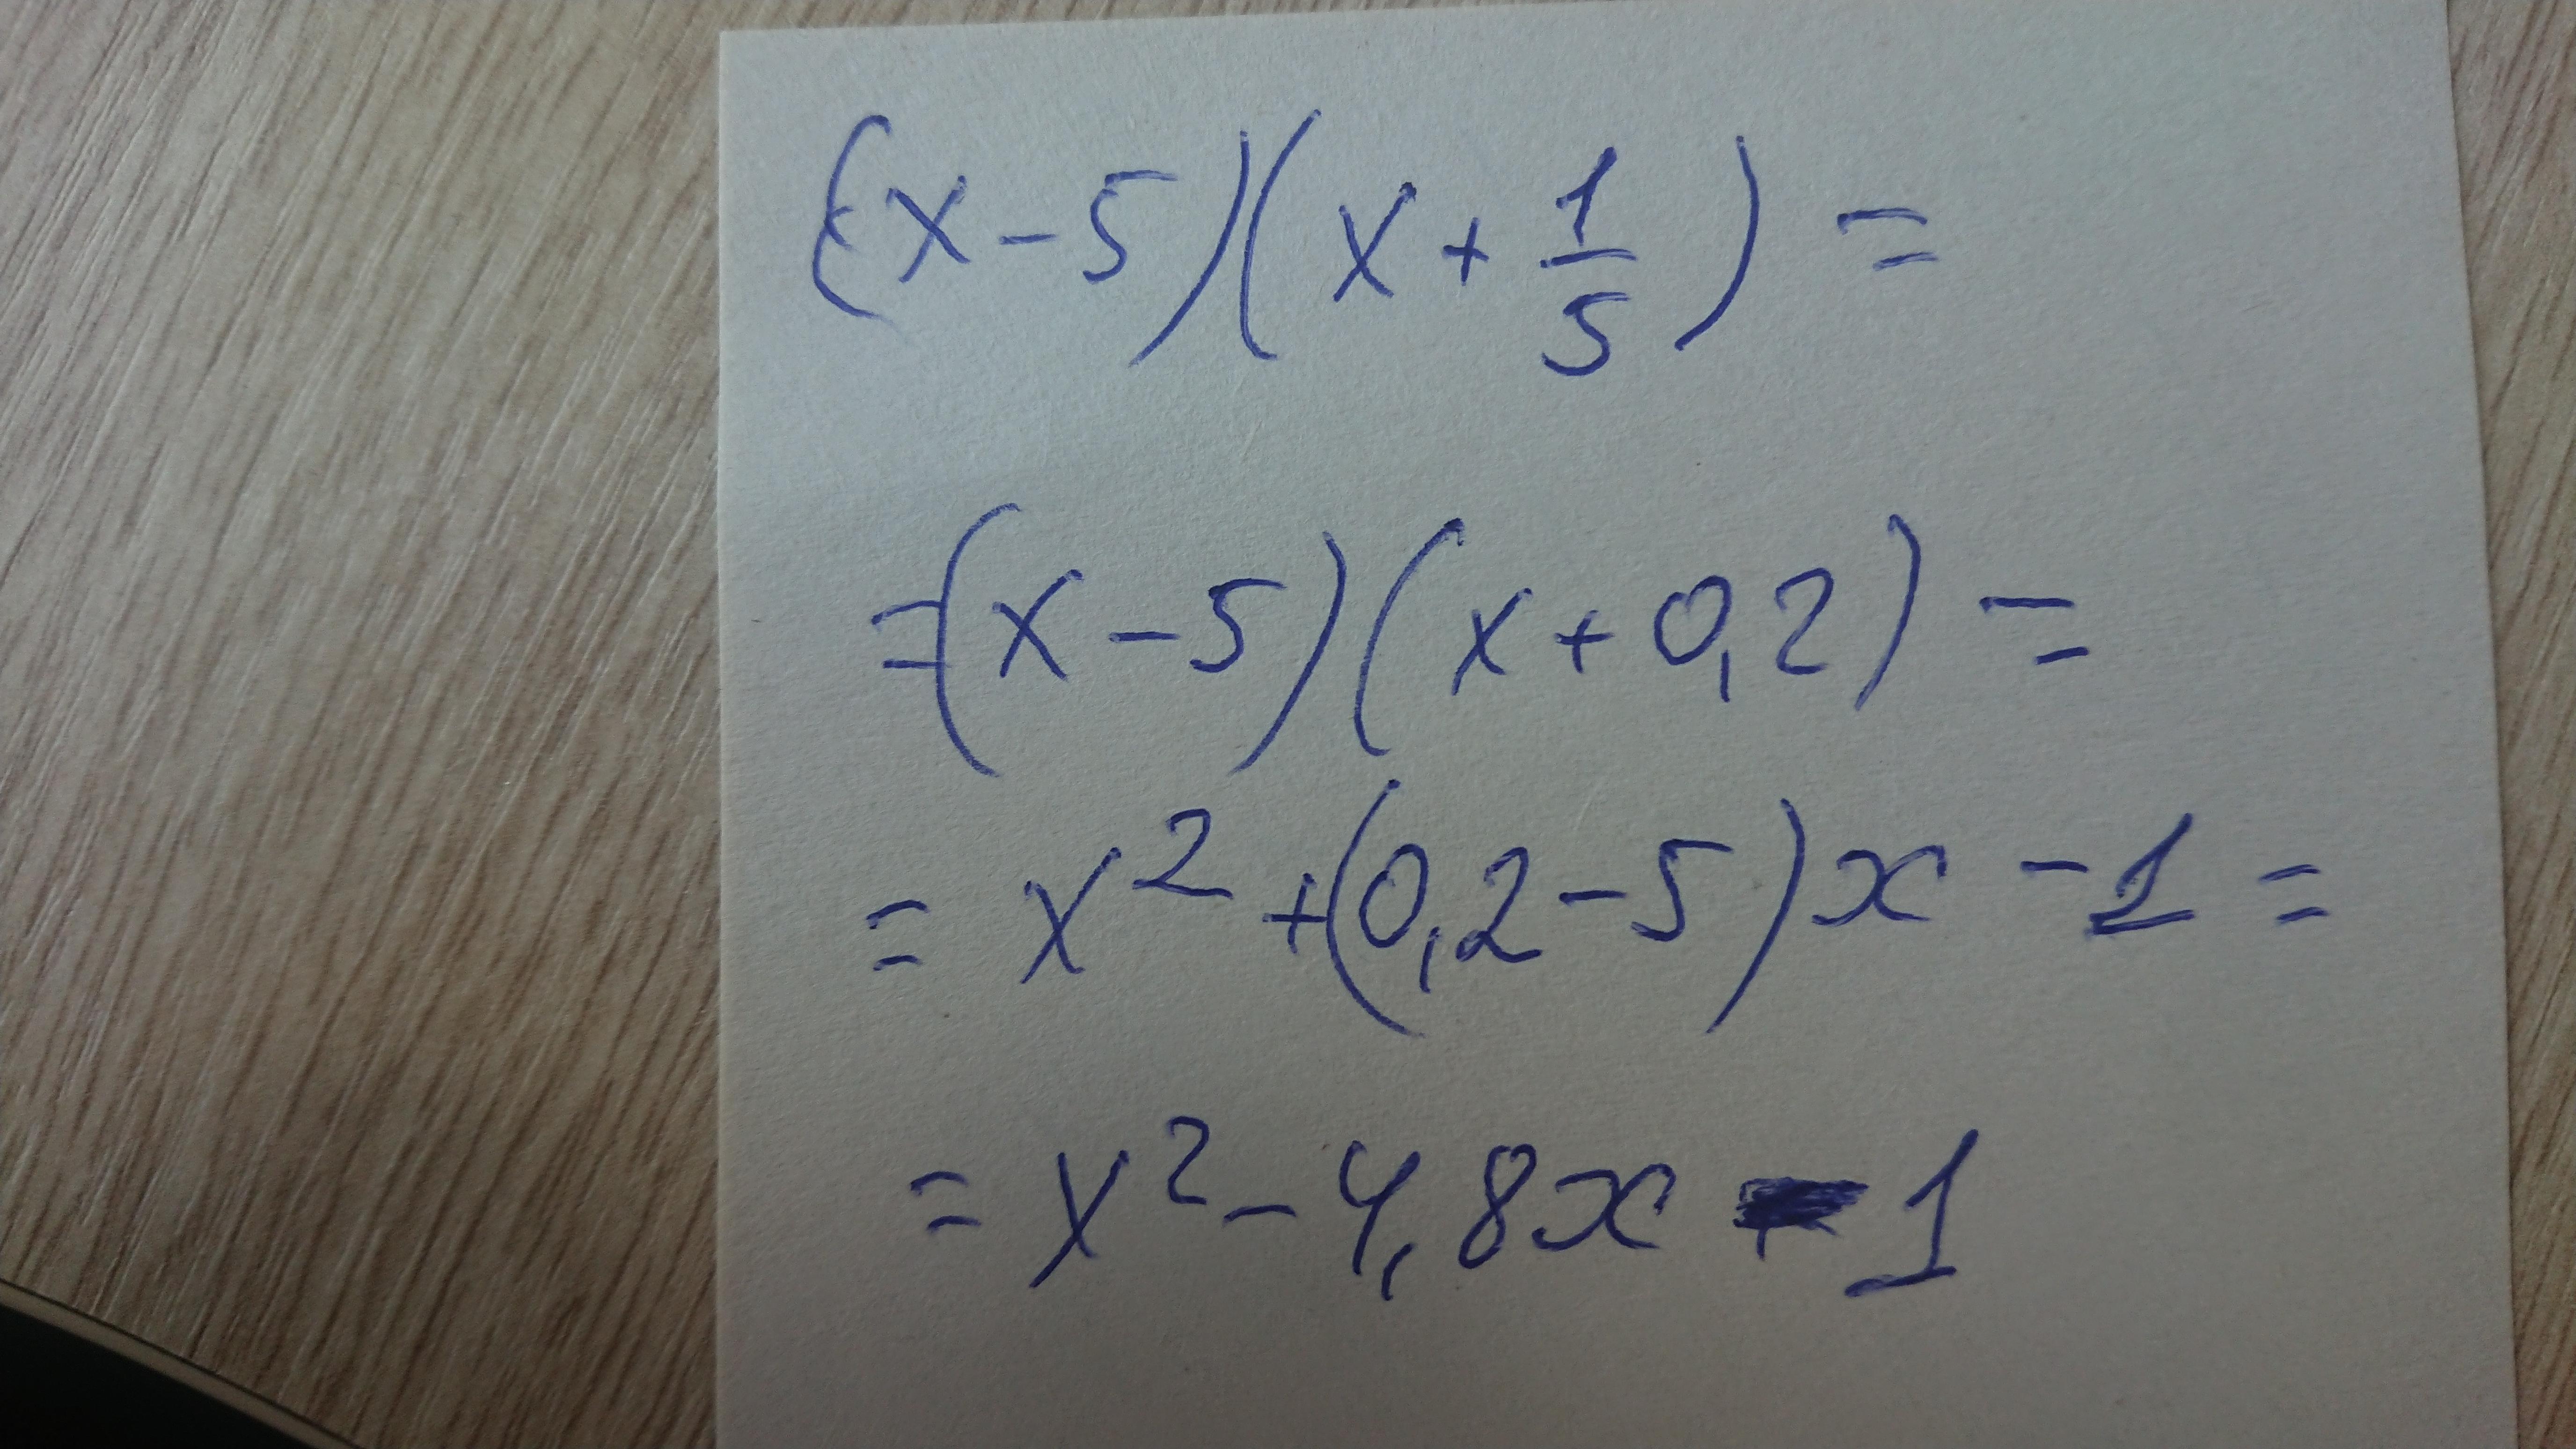 (x-5)(x+1/5)=
=(x-5)(x+0,2)=
=x²+(0,2-5)x-1=
=x²-4,8x-1